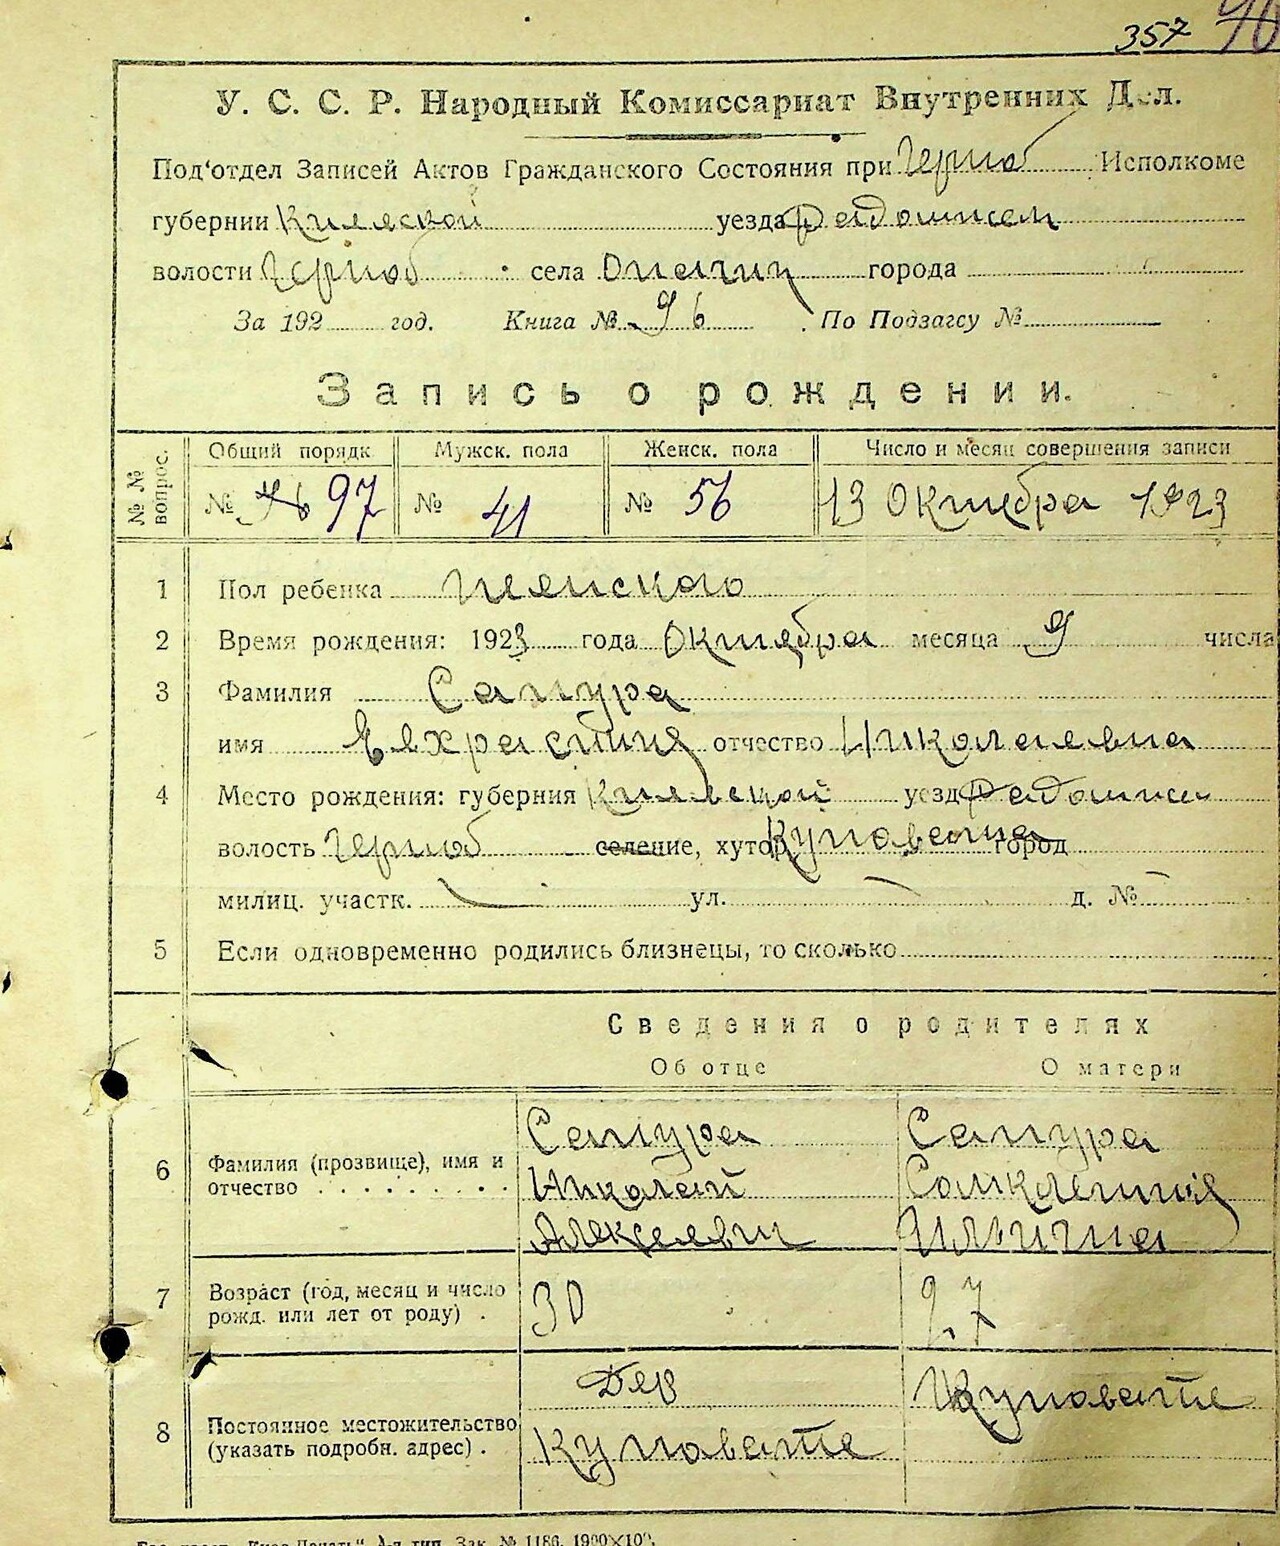 357 46
У. С. С. Р. Народный Комиссариат Внутренних Дел.
Под'отдел Записей Актов Гражданского Состояния при Черноб Исполкоме
губернии Киевской уезда Радомысл
волости Черноб села Опачич города
За 192 год. Книга № 96 По Подзагсу №
Запись о рождении.
№№ вопрос. Общий порядк Мужск. пола Женск. пола Число и месяц совершения записи
№ 96 97 № 41 № 56 13 Октября 1923
1 Пол ребенка Женского
2 Время рождения: 1923 года Октября месяца 9 числа
3 Фамилия Сапура
имя Евхрастиня отчество Николаевна
4 Место рождения: губерния Киевской уезд Радомысл
волость Черноб селение, хутор город
милиц. участк. ул. д. №
5 Если одновременно родились близнецы, то сколько
Сведения о родителях
Об отце О матери
Сапура Сапура
6 Фамилия (прозвище), имя и
отчество Николай
Алексеевич
7 Возраст (год, месяц и число
рожд. или лет от роду) . 30 27
Дер Куповате
8 Постоянное местожительство
(указать подробн. адрес) . Куповате
Зак. № 1186. 1900×10